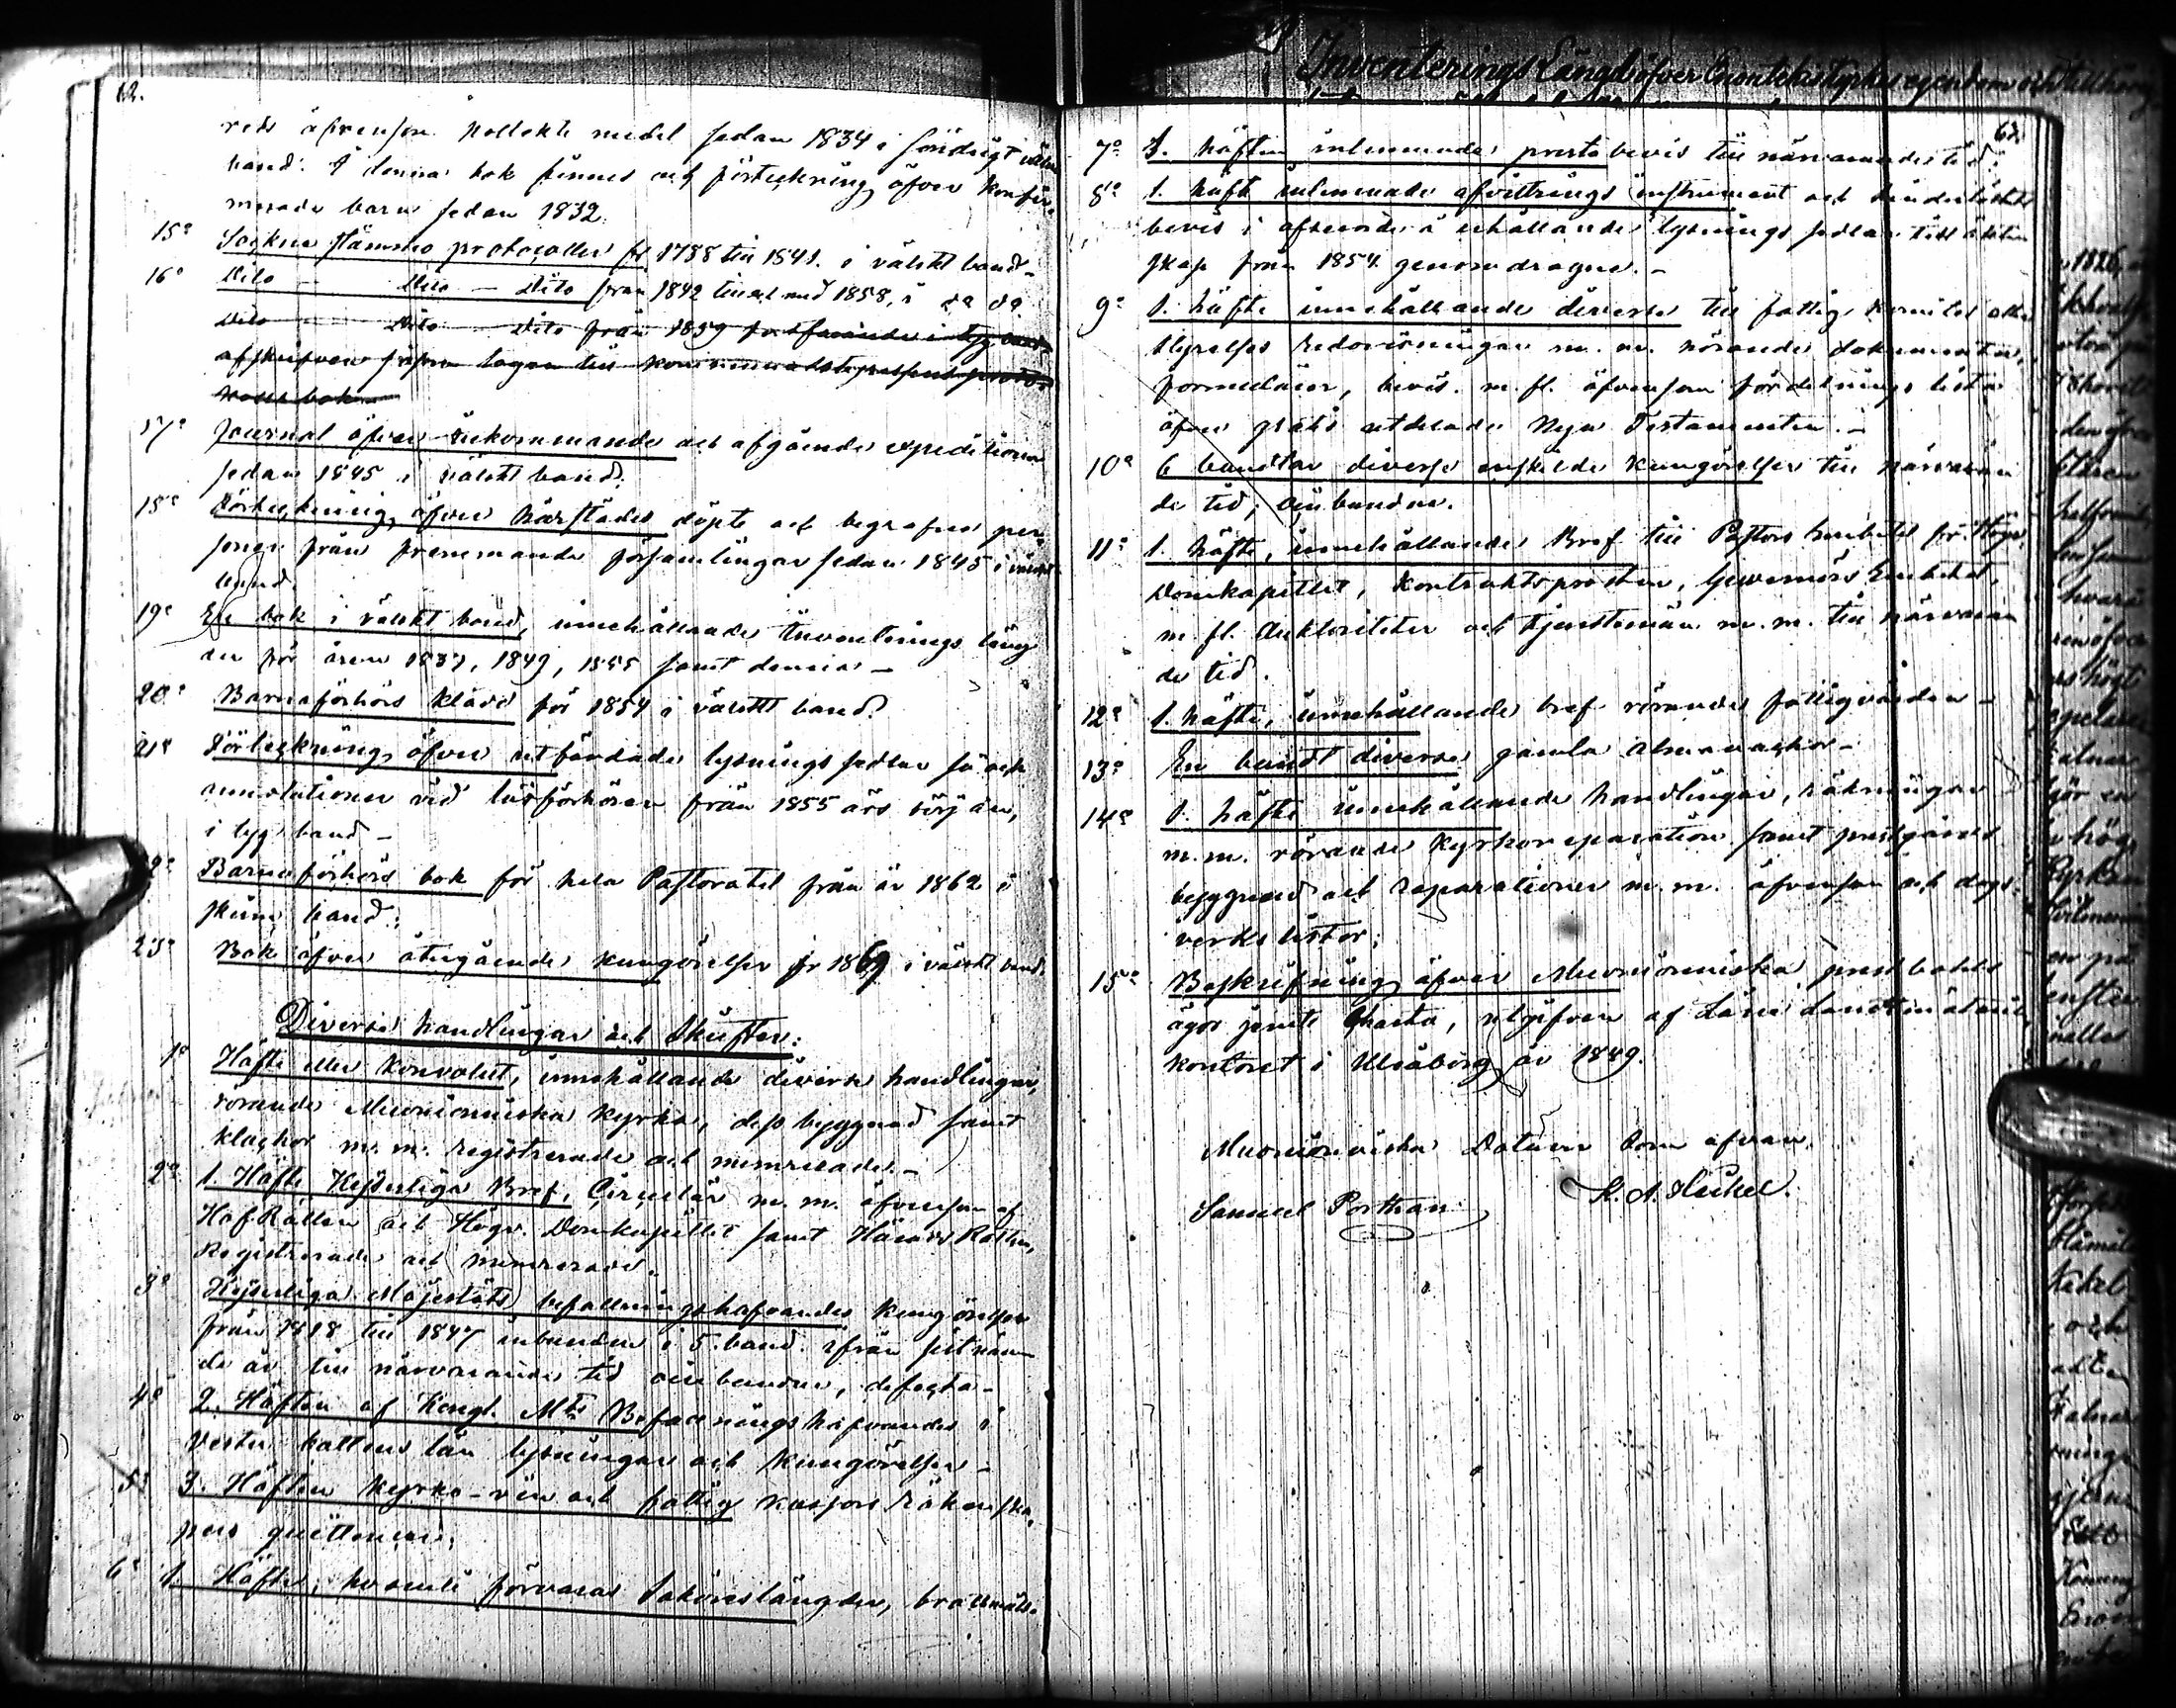 62.
reds äfvensom kollekt medel sedan 1834 i söndrigt välskt
band. I denna bok finnes ock förteckning öfver konfir-
merade barn sedan 1832.
15º Sockne stämmo protocoller fr 1788 till 1841. i välskt band -
16º Dito - Dito - Dito från 1842 till och med 1858, i do do
Dito - Dito - Dito från 1859 fortfarande i tyg band
afskrifven lagen till kommunalstyrelsens proto-
kolls bok
17º Journal öfver inkommande och afgående expeditioner
sedan 1845 i välskt band.
18º Förteckning öfver härstädes döpte och begrafne per-
soner från fremmande församlingar sedan 1845 i välskt
band.
19º En bok i välskt band, innehållande Inventerings läng-
der för åren 1837, 1849, 1855 samt denna -
20º Barnaförhörs kladd för 1854 i välskt band.
21º Förteckning öfver utfärdade lysnings sedlar så ock
annotationer vid läsförhören från 1855 års början,
i tyg band -
22º Barnaförhörs bok för hela Pastoratet från år 1862 i
skinn band.
23º Bok öfver återgående kungörelser fr 1869 i välskt band.
Diverse handlingar och Skrifter:
1º Häfte eller Konvolut, innehållande diverse handlingar,
rörande Muonioniska kyrka, dess byggnad samt
klockor m. m. registrerade och numrerade. -
2º 1. Häfte Kejserliga Bref, Circulär m. m. äfvensom af
HofRätten och Högv. Domkapitlet samt Härads Rätten,
Registrerade och numrerade.
3º Kejserliga Majestäts befallningshafvandes Kungörelser
från 1818 till 1847 inbundna i 5. band. ifrån sistnämn-
de år till närvarande tid oinbundna, defecta -
4º 2. Häften af Kongl. Mts Befallningshafvandes i
Vesterbottens län lysningar och Kungörelser -
5º 3. Häften kyrko-vin och fattig kassors räkenska-
pers quittencer.
6º 1. Häfte, hvaruti förvaras Saköreslängder, brottmåls-
Inventerings Längd öfver Enontekis Kyrkas egendom och tillhörig
62.
7º 3. häften inlemnade prestabevis till närvarande tid:
8º 1. häft inlemnade afvittrings instrument och hinderlöshets
bevis i afseende å erhållande lysnings sedlar till äkten-
skap från 1854 genomdragne. -
9º 1. häfte innehållande diverse till fattig komités eller
styrelses redovisningar m. m. hörande dokumenter,
formulärer, bevis. m. fl. äfvensom fördelnings lista
öfver gratis utdelade Nya Testamenten. -
10º 6 bundtar diverse enskilda kungörelser till närvaran-
de tid, oinbundne.
11º 1. häfte, innehållande Bref till Pastors Embetet fr. Högv.
Domkapitlet, Kontraktsprosten, Guvernörs Embetet,
m. fl. Auktoriteter och tjenstemän m. m. till närvaran-
de tid.
12º 1. häfte, innehållande bref rörande fattigvården -
13º En bundt diverse gamla almanachor -
14º 1. häfte innehållande handlingar, räkningar
m. m. rörande kyrkoreparation samt prestgårds
byggnad och reparationer m. m. äfvensom och dags-
verks listor.
15º Beskrifning öfver Muonioniska prestbohls
ägor jemte Charta, utgifven af Läne Landtmäteri
kontoret i Uleåborg år 1849.
Muonioniska Datum som ofvan.
Samuel Porthan
K. A. Heikel.